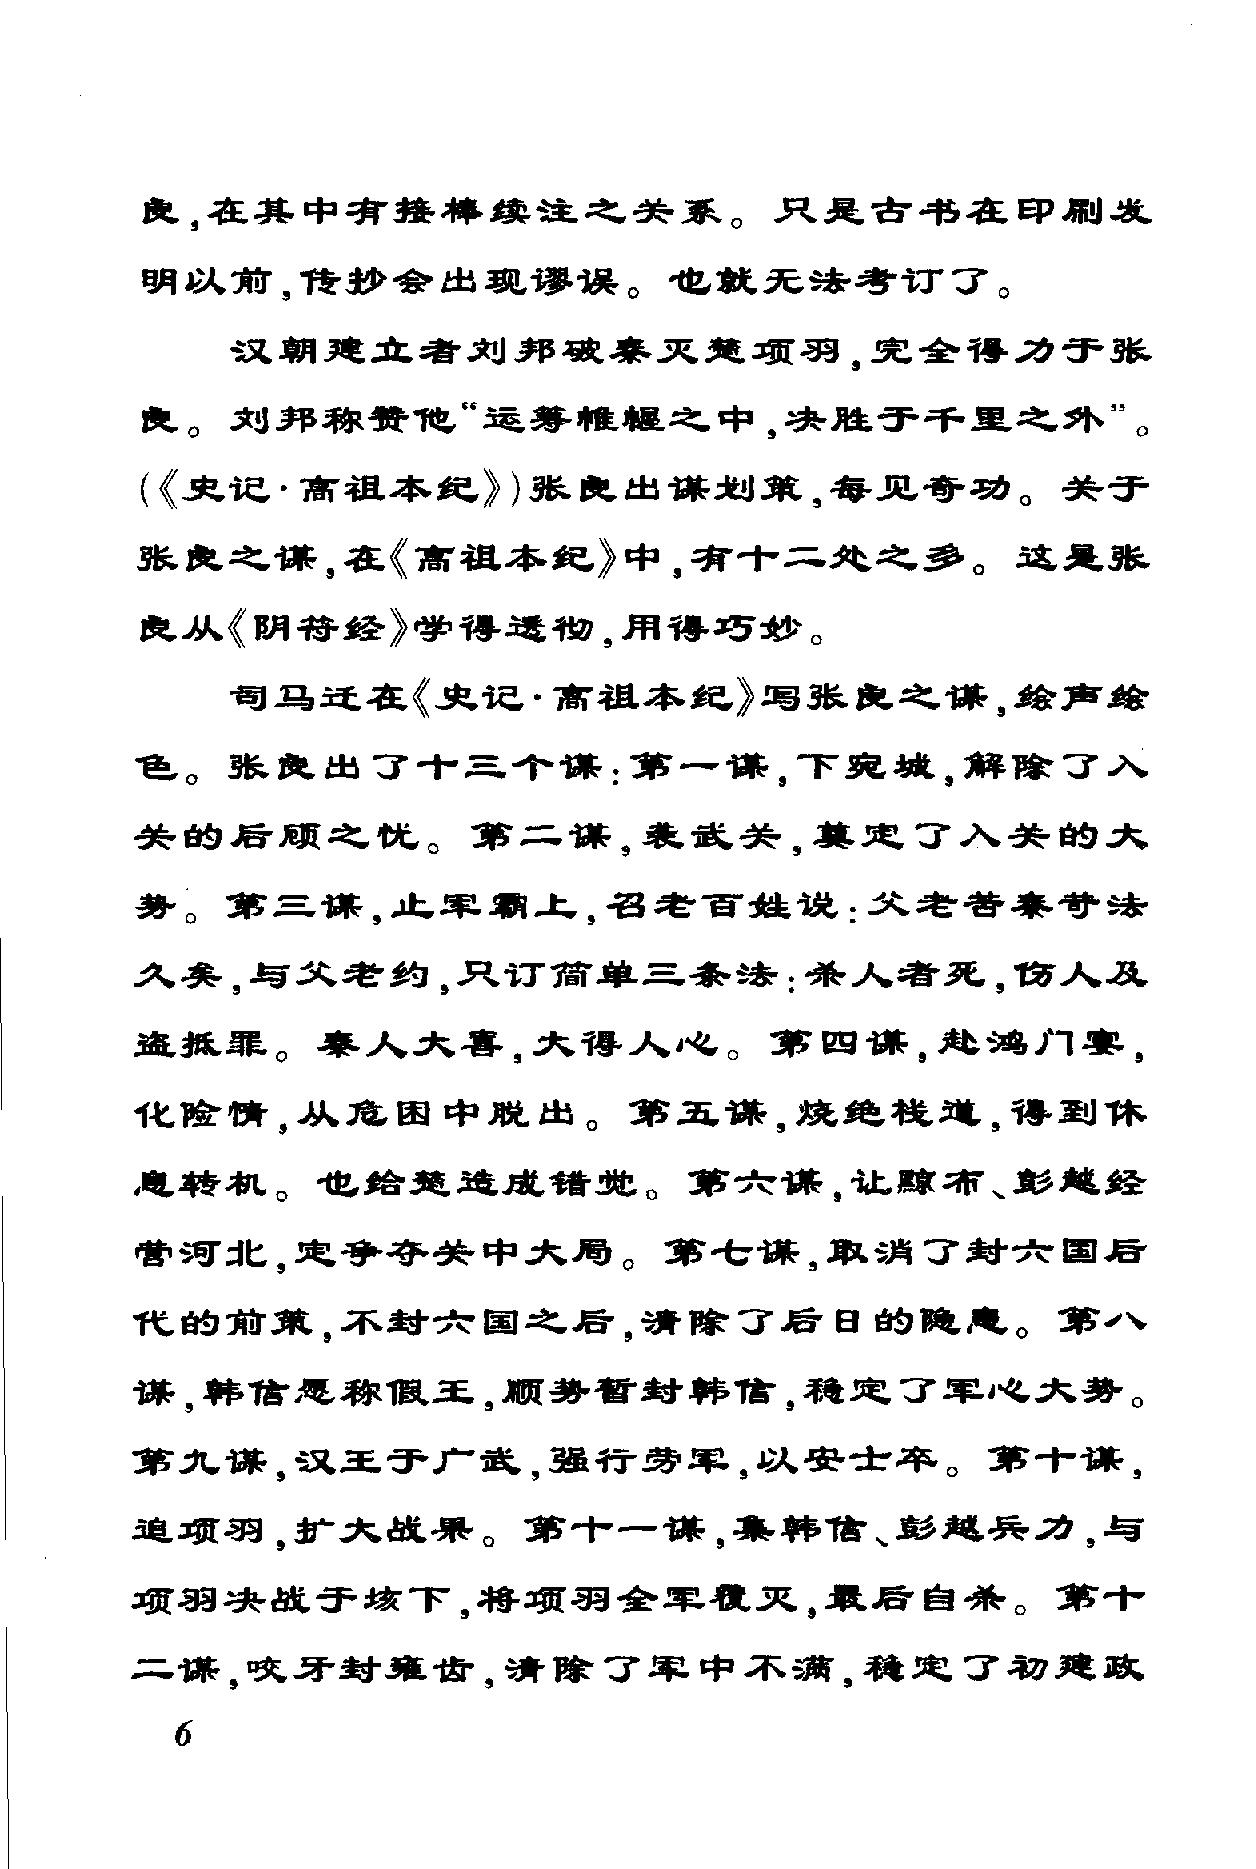 良,在其中有接棒续注之关系。只是古书在印刷发
明以前,传抄会出现谬误。也就无法考订了。
汉朝建立者刘邦破秦灭楚项羽,完全得力于张
良。刘邦称赞他“运筹帷幄之中,决胜于千里之外”。
(《史记·高祖本纪》)张良出谋划策,每见奇功。关于
张良之谋,在《高祖本纪》中,有十二处之多。这是张
良从《阴符经》学得透彻,用得巧妙。
司马迁在《史记·高祖本纪》写张良之谋,绘声绘
色。张良出了十三个谋:第一谋,下宛城,解除了入
关的后顾之忧。第二谋,袭武关,奠定了入关的大
势。第三谋,止军霸上,召老百姓说:父老苦秦苛法
久矣,与父老约,只订简单三条法:杀人者死,伤人及
盗抵罪。秦人大喜,大得人心。第四谋,赴鸿门宴,
化险情,从危困中脱出。第五谋,烧绝栈道,得到休
息转机。也给楚造成错觉。第六谋,让黥布、彭越经
营河北,定争夺关中大局。第七谋,取消了封六国后
代的前策,不封六国之后,清除了后日的隐患。第八
谋,韩信愿称假王,顺势暂封韩信,稳定了军心大势。
第九谋,汉王于广武,强行劳军,以安士卒。第十谋,
追项羽,扩大战果。第十一谋,集韩信、彭越兵力,与
项羽决战于垓下,将项羽全军覆灭,最后自杀。第十
二谋,咬牙封雍齿,清除了军中不满,稳定了初建政
6